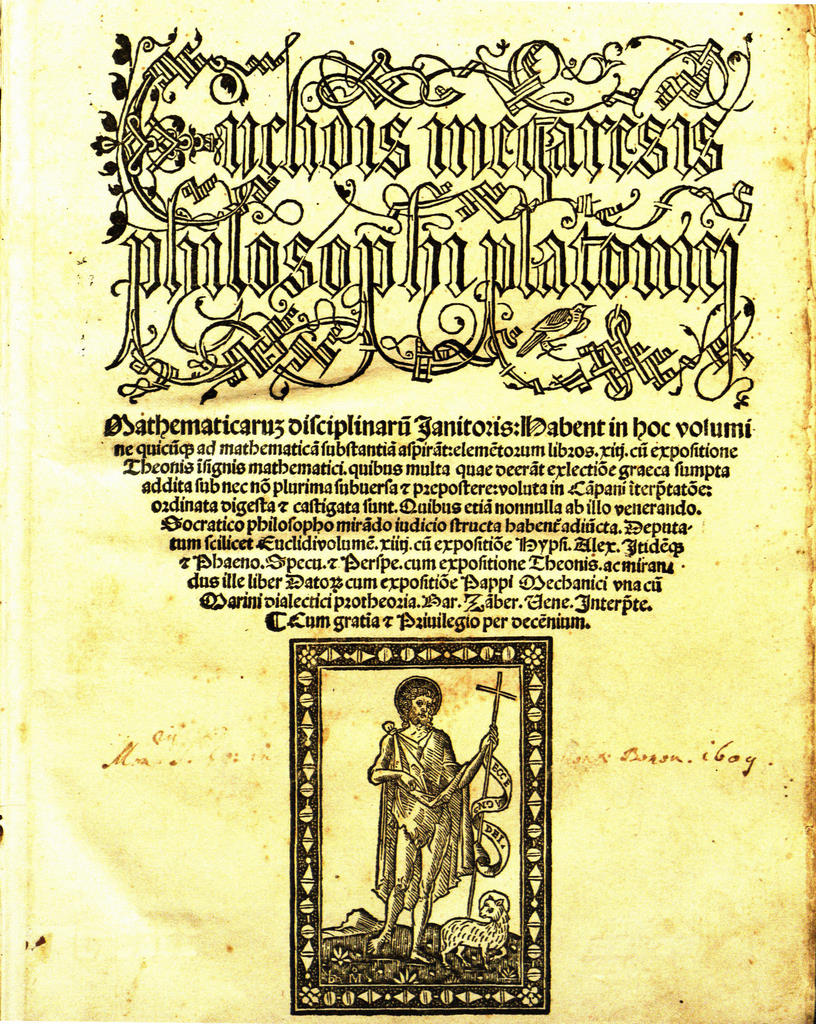 Euclidis megarēsis
philosophi platonicj
Mathematicaruʒ disciplinarū Janitoris: Habent in hoc volumi
ne quicūqꝫ ad mathematicā substantiā aspirāt: elemētorum libros. xiij. cū expositione
Theonis īsignis mathematici. quibus multa quae deerāt exlectiōe graeca sumpta
addita sub nec nō plurima subuersa ⁊ prepostere: voluta in Cāpani īterp̄tatōe:
ordinata digesta ⁊ castigata sunt. Quibus etiā nonnulla ab illo venerando.
Socratico philosopho mirādo iudicio structa habent̄ adiūcta. Deputa-
tum scilicet Euclidi volumē. xiiij. cū expositiōe Hypsi. Alex. Itidēqꝫ
⁊ Phaeno. Specu. ⁊ Perspe. cum expositione Theonis. ac miran
dus ille liber Datoꝝ cum expositiōe Pappi Mechanici vna cū
Marini dialectici protheoria. Bar. Zāber. Vene. Interp̄te.
¶ Cum gratia ⁊ Priuilegio per decēnium.
ECCE
DEI.
Bonon. 1609.
b M